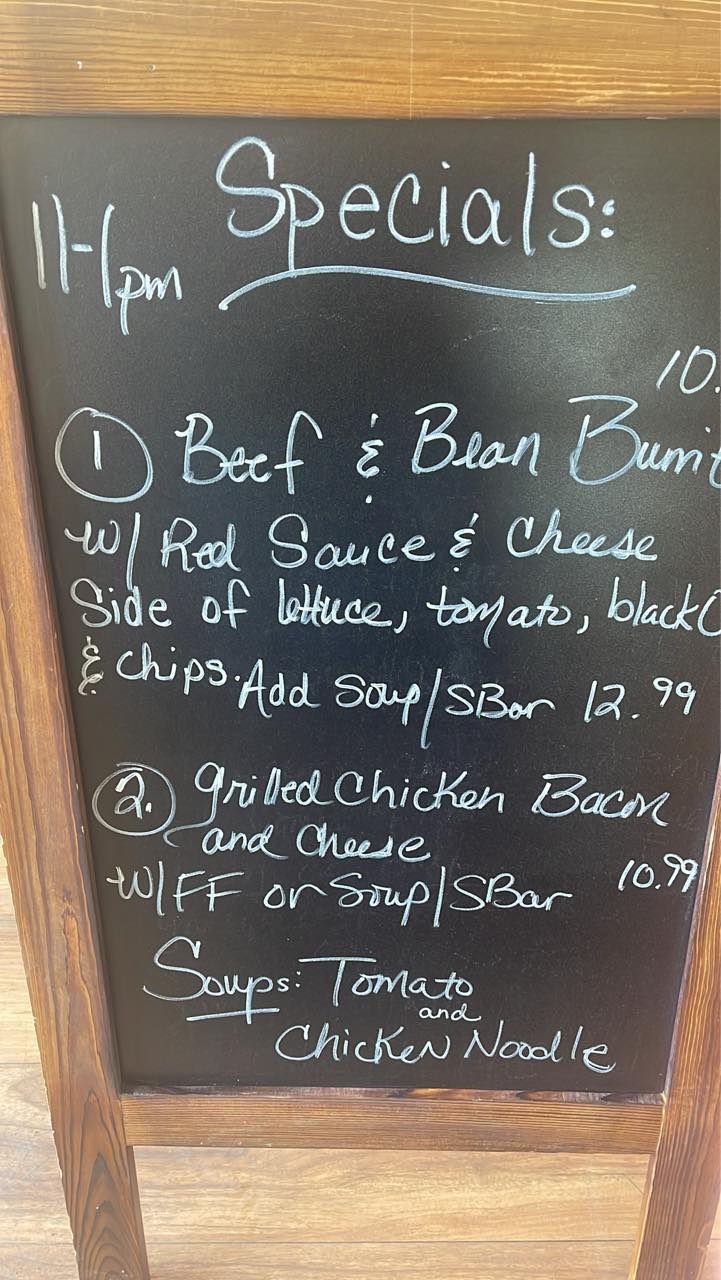 Specials:
11-1pm
10.
① Beef & Bean Burrit
w/ Red Sauce & Cheese
Side of lettuce, tomato, black
& chips. Add Soup/SBar 12.99
②. grilled Chicken Bacon
and Cheese
W/FF or Soup/SBar 10.99
Soups: Tomato
and
Chicken Noodle